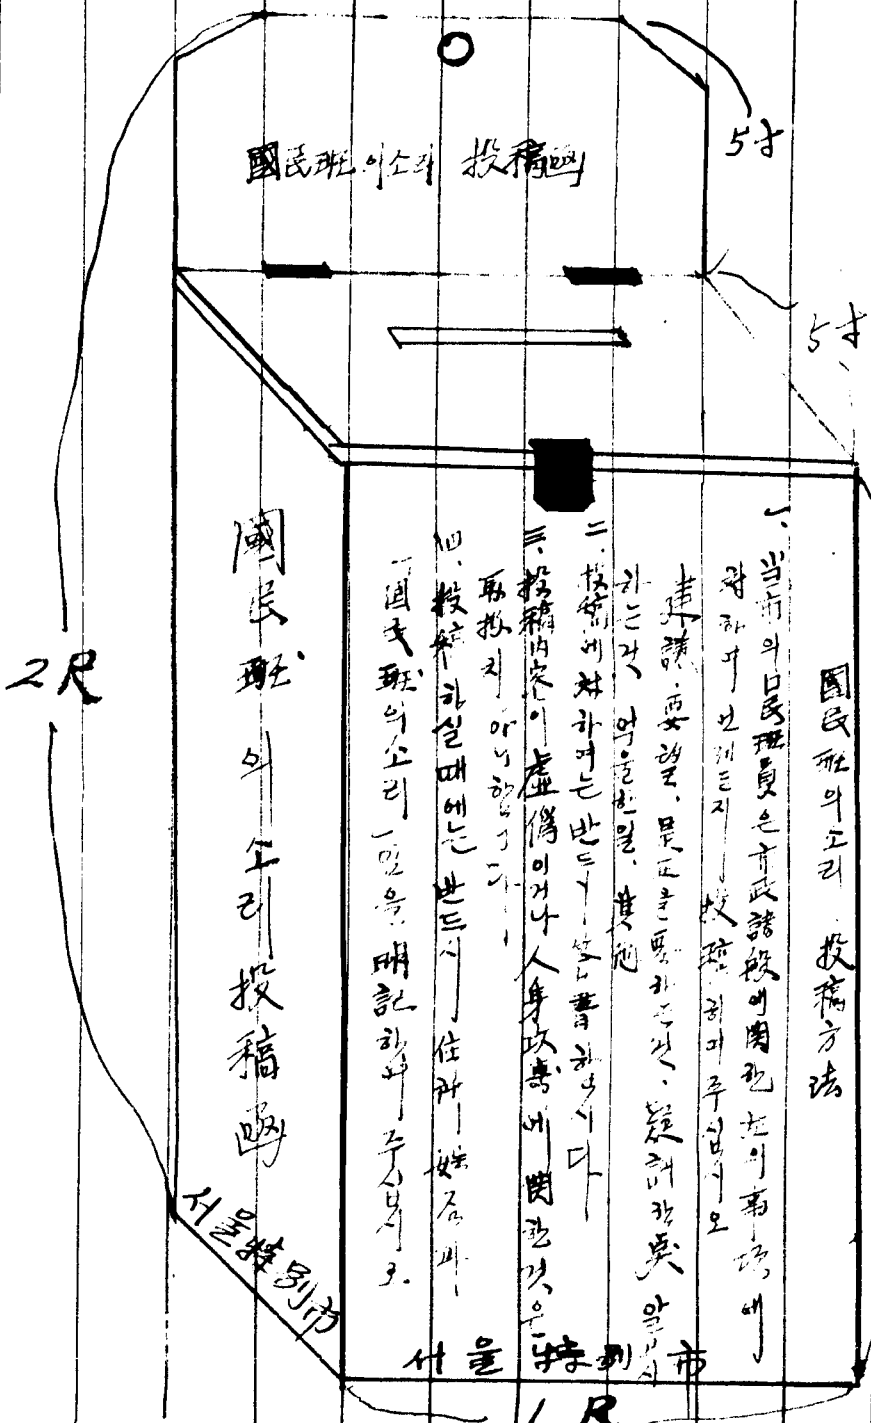 國民班의소리 投稿函
5寸
5寸
2R
國民班의 소리 投稿函
서울特別市
國民班의소리 投稿方法
一、当市의 國民班員은 市政諸般에 関한 左의 事項에
対하여 언제든지 投稿하여 주십시오
建議、要望、是正을 要하는것、疑訝한点 알고저
하는것、억울한일、其他
二、投稿에 対하여는 반드시 答書합니다
三、投稿内容이 虛僞이거나 人身攻擊에 関한것은
取扱지 아니합니다
四、投稿하실때에는 반드시 住所 姓名과
「國民班의소리」 을 明記하여 주십시오.
서울特別市
1R